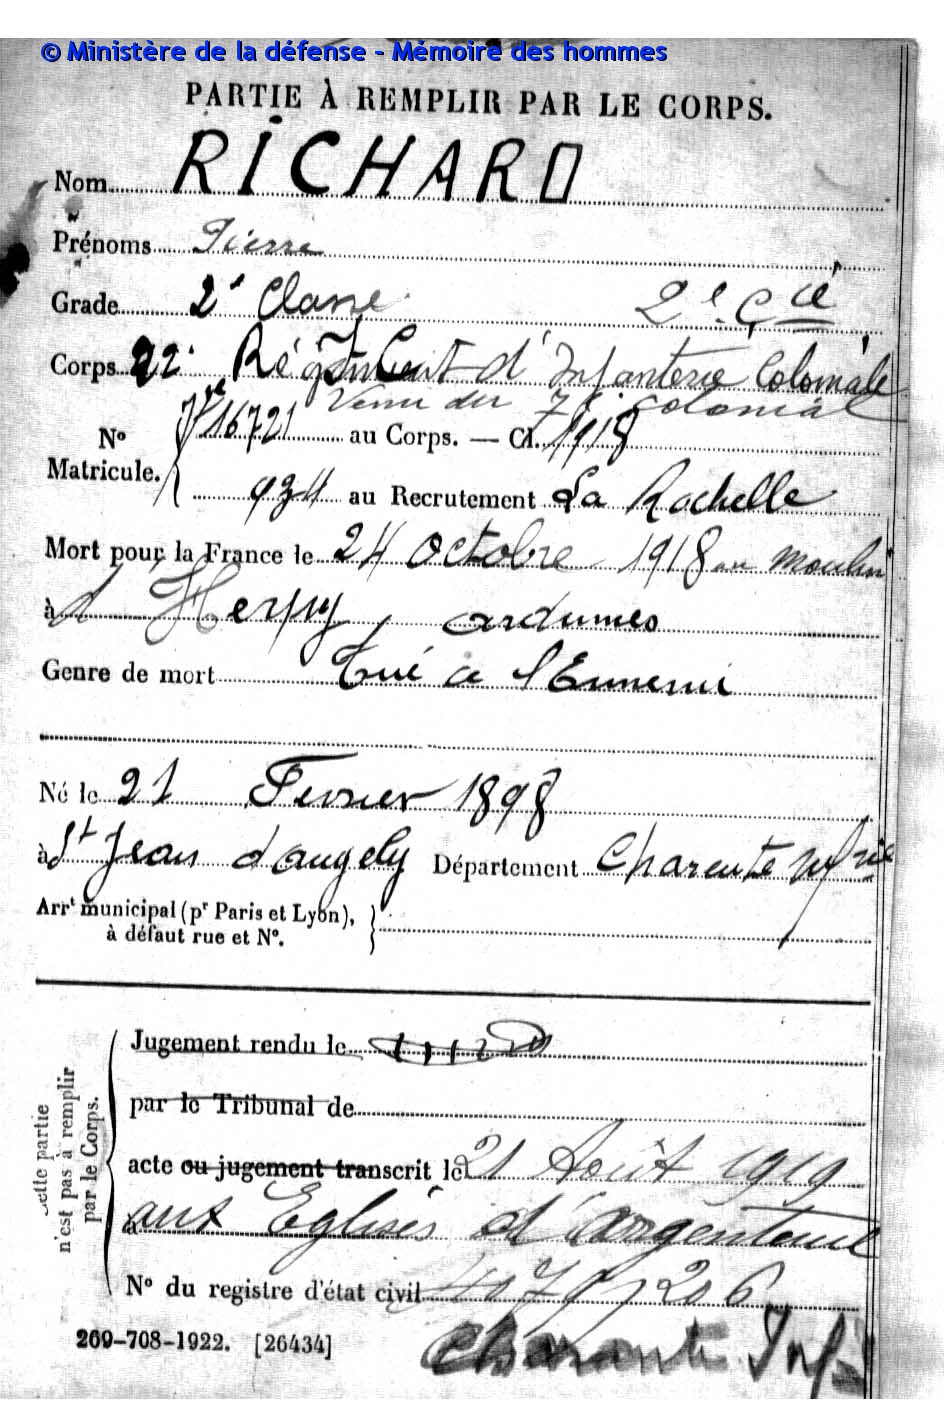 © Ministère de la défense - Mémoire des hommes
PARTIE À REMPLIR PAR LE CORPS.
Nom RICHARD
Prénoms Pierre
Grade 2e Classe 2e Cie
Corps 22e Régiment d'Infanterie Coloniale
Venu du 7e colonial
No Matricule. 16721 au Corps. — Cl. 1918
934 au Recrutement La Rochelle
Mort pour la France le 24 Octobre 1918 au Moulin
à d'Herpy Ardennes
Genre de mort Tué à l'Ennemi
Né le 21 Fevrier 1898
à St Jean d'angely Département Charente Infrie
Arrt municipal (pr Paris et Lyon),
à défaut rue et No.
Cette partie
n'est pas à remplir
par le Corps.
Jugement rendu le
par le Tribunal de
acte ou jugement transcrit le 21 Août 1919
à aux Eglises d'Argenteuil
No du registre d'état civil
269-708-1922. [26434]
Charente Inf.